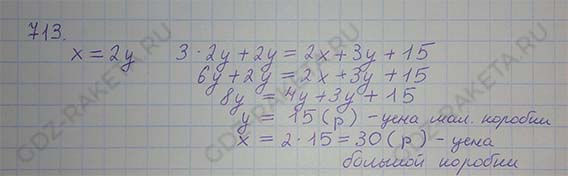 713.
x = 2y 3 · 2y + 2y = 2x + 3y + 15
6y + 2y = 2x + 3y + 15
8y = 4y + 3y + 15
y = 15 (р) - цена мал. коробки
x = 2 · 15 = 30 (р) - цена
большой коробки
GDZ-RAKETA.RU
GDZ-RAKETA.RU
GDZ-RAKETA.RU